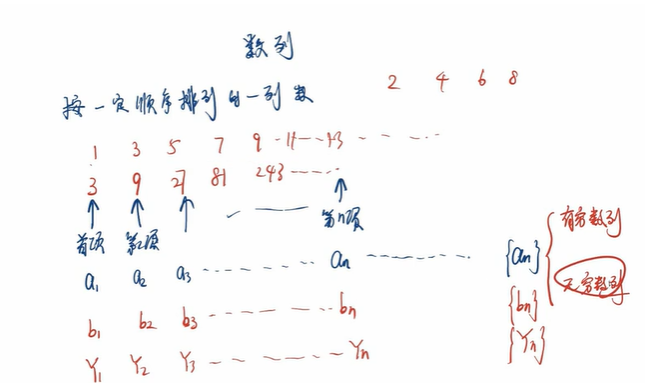 数列
按一定顺序排列的一列数
2 4 6 8
1 3 5 7 9 11 13
3 9 27 81 243
首项 第2项 第n项
a1 a2 a3 an
b1 b2 b3 bn
Y1 Y2 Y3 Yn
{an} 有穷数列
无穷数列
{bn}
{Yn}